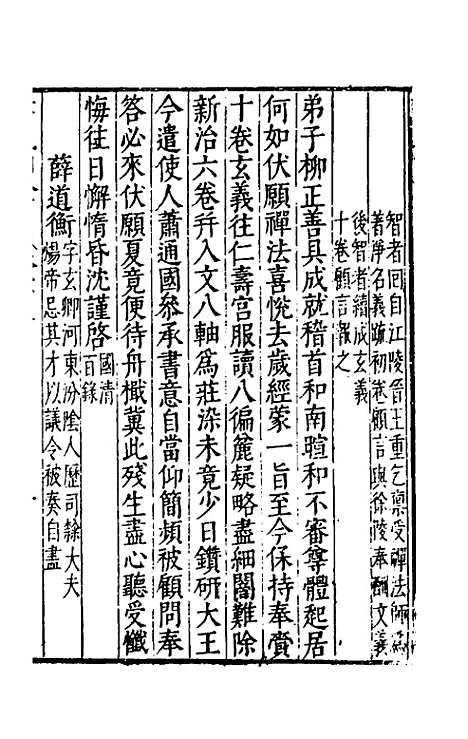 智者回自江陵晉王重乞禀受禪法師
著淨名義疏初卷顧言與徐陵奉酬文義
後智者續成玄義
十卷顧言報之
弟子柳正善具成就稽首和南暄和不審尊體起居
何如伏願禪法喜悅去歲經蒙一旨至今保持奉賫
十卷玄義往仁壽宮服讀八徧麄疑略盡細闇難除
新治六卷并入文八軸爲莊染未竟少日鑽研大王
今遣使人蕭通國叅承書意自當仰簡頻被顧問奉
答必來伏願夏竟便待舟檝冀此殘生盡心聽受懺
悔徃日懈惰昏沈謹啓國清
百錄
薛道衡字玄卿河東汾陰人歷司隸大夫
煬帝忌其才以議令被奏自盡